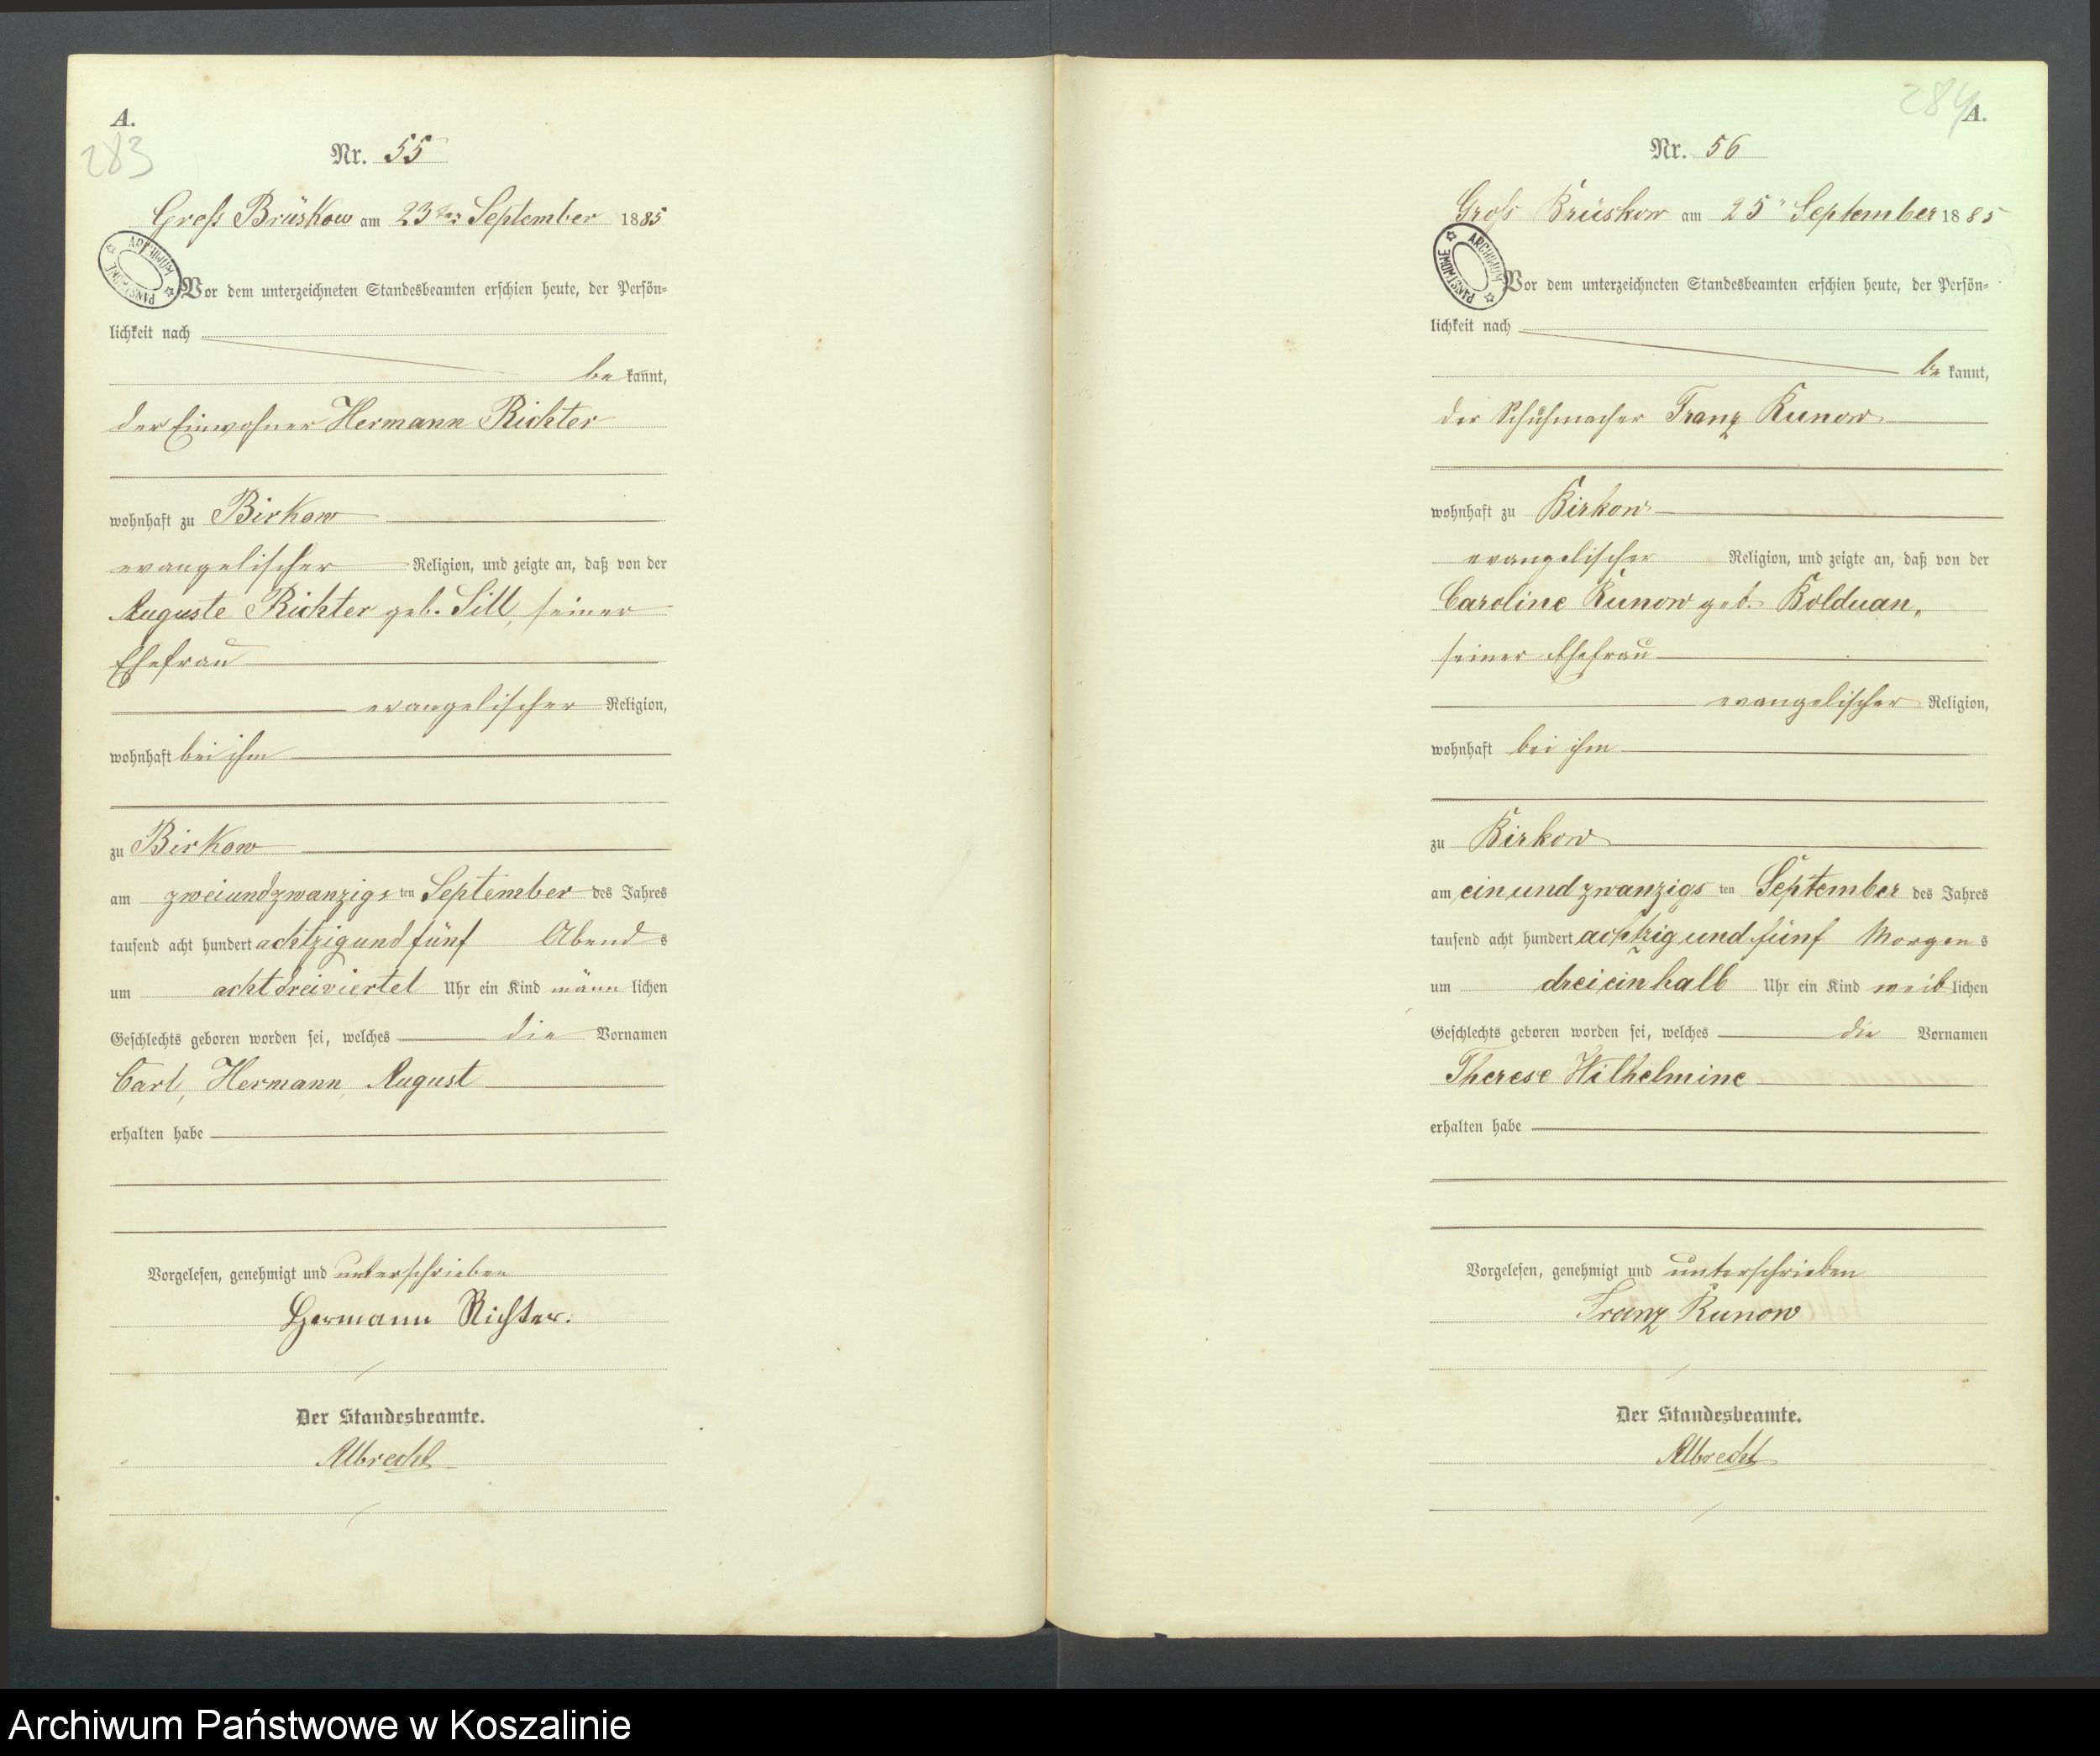 A.
283
Nr. 55
Groß Brüskow am 23ten September 1885
ARCHIWUM PAŃSTWOWE
Vor dem unterzeichneten Standesbeamten erschien heute, der Persön-
lichkeit nach
be kannt,
der Einwohner Hermann Richter
wohnhaft zu Birkow
evangelischer Religion, und zeigte an, daß von der
Auguste Richter geb. Sill, seiner
Ehefrau
evangelischer Religion,
wohnhaft bei ihm
zu Birkow
am zweiundzwanzigs ten September des Jahres
tausend acht hundert achtzig und fünf Abend s
um acht dreiviertel Uhr ein Kind männ lichen
Geschlechts geboren worden sei, welches die Vornamen
Carl, Hermann, August
erhalten habe
Vorgelesen, genehmigt und unterschrieben
Hermann Richter.
Der Standesbeamte.
Albrecht
284
A.
Nr. 56
Groß Brüskow am 25" September 1885
ARCHIWUM PAŃSTWOWE
Vor dem unterzeichneten Standesbeamten erschien heute, der Persön-
lichkeit nach
be kannt,
der Schuhmacher Franz Kunow
wohnhaft zu Birkow
evangelischer Religion, und zeigte an, daß von der
Caroline Kunow geb. Kolduan,
seiner Ehefrau
evangelischer Religion,
wohnhaft bei ihm
zu Birkow
am ein und zwanzigs ten September des Jahres
tausend acht hundert achtzig und fünf Morgen s
um drei ein halb Uhr ein Kind weib lichen
Geschlechts geboren worden sei, welches die Vornamen
Therese Wilhelmine
erhalten habe
Vorgelesen, genehmigt und unterschrieben
Franz Kunow
Der Standesbeamte.
Albrecht
Archiwum Państwowe w Koszalinie